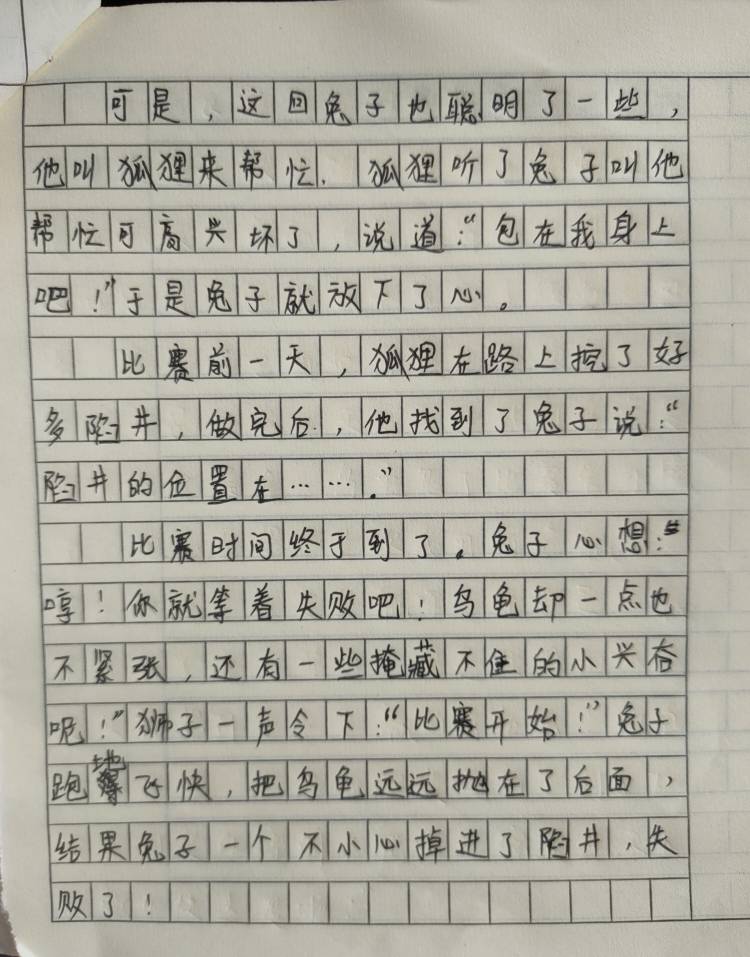 可是，这回兔子也聪明了一些，
他叫狐狸来帮忙．狐狸听了兔子叫他
帮忙可高兴坏了，说道：“包在我身上
吧！”于是兔子就放下了心。
比赛前一天，狐狸在路上挖了好
多陷井，做完后，他找到了兔子说：“
陷井的位置在……．”
比赛时间终于到了。兔子心想：“
哼！你就等着失败吧！乌龟却一点也
不紧张，还有一些掩藏不住的小兴奋
呢！”狮子一声令下：“比赛开始！”兔子
跑地飞快，把乌龟远远抛在了后面，
结果兔子一个不小心掉进了陷井，失
败了！